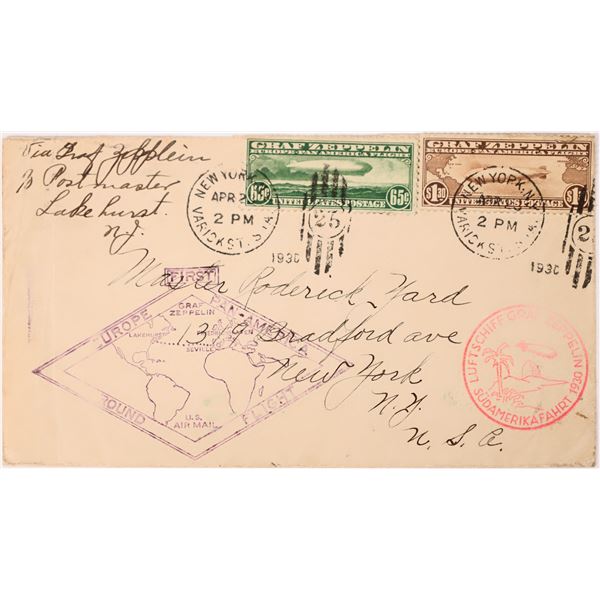 Via Graf Zeppelin
% Postmaster
Lakehurst.
N.J.
GRAF ZEPPELIN
EUROPE-PAN AMERICA FLIGHT
65¢ 65¢
UNITED STATES POSTAGE
GRAF ZEPPELIN
EUROPE-PAN AMERICA FLIGHT
$1.30 $1.
UNITED STATES POSTAGE
NEW YORK, N.
APR 2
2 PM
VARICK ST. STA.
1930
25
NEW YORK, N.
2 PM
VARICK ST. STA.
1930
2
Master Roderick Yard
Bradford ave
New York
N.Y.
U.S.A.
FIRST
EUROPE PAN-AMERICA
ROUND FLIGHT
GRAF
ZEPPELIN
LAKEHURST
SEVILLE
U.S.
AIR MAIL
LUFTSCHIFF GRAF ZEPPELIN
SÜDAMERIKAFAHRT 1930